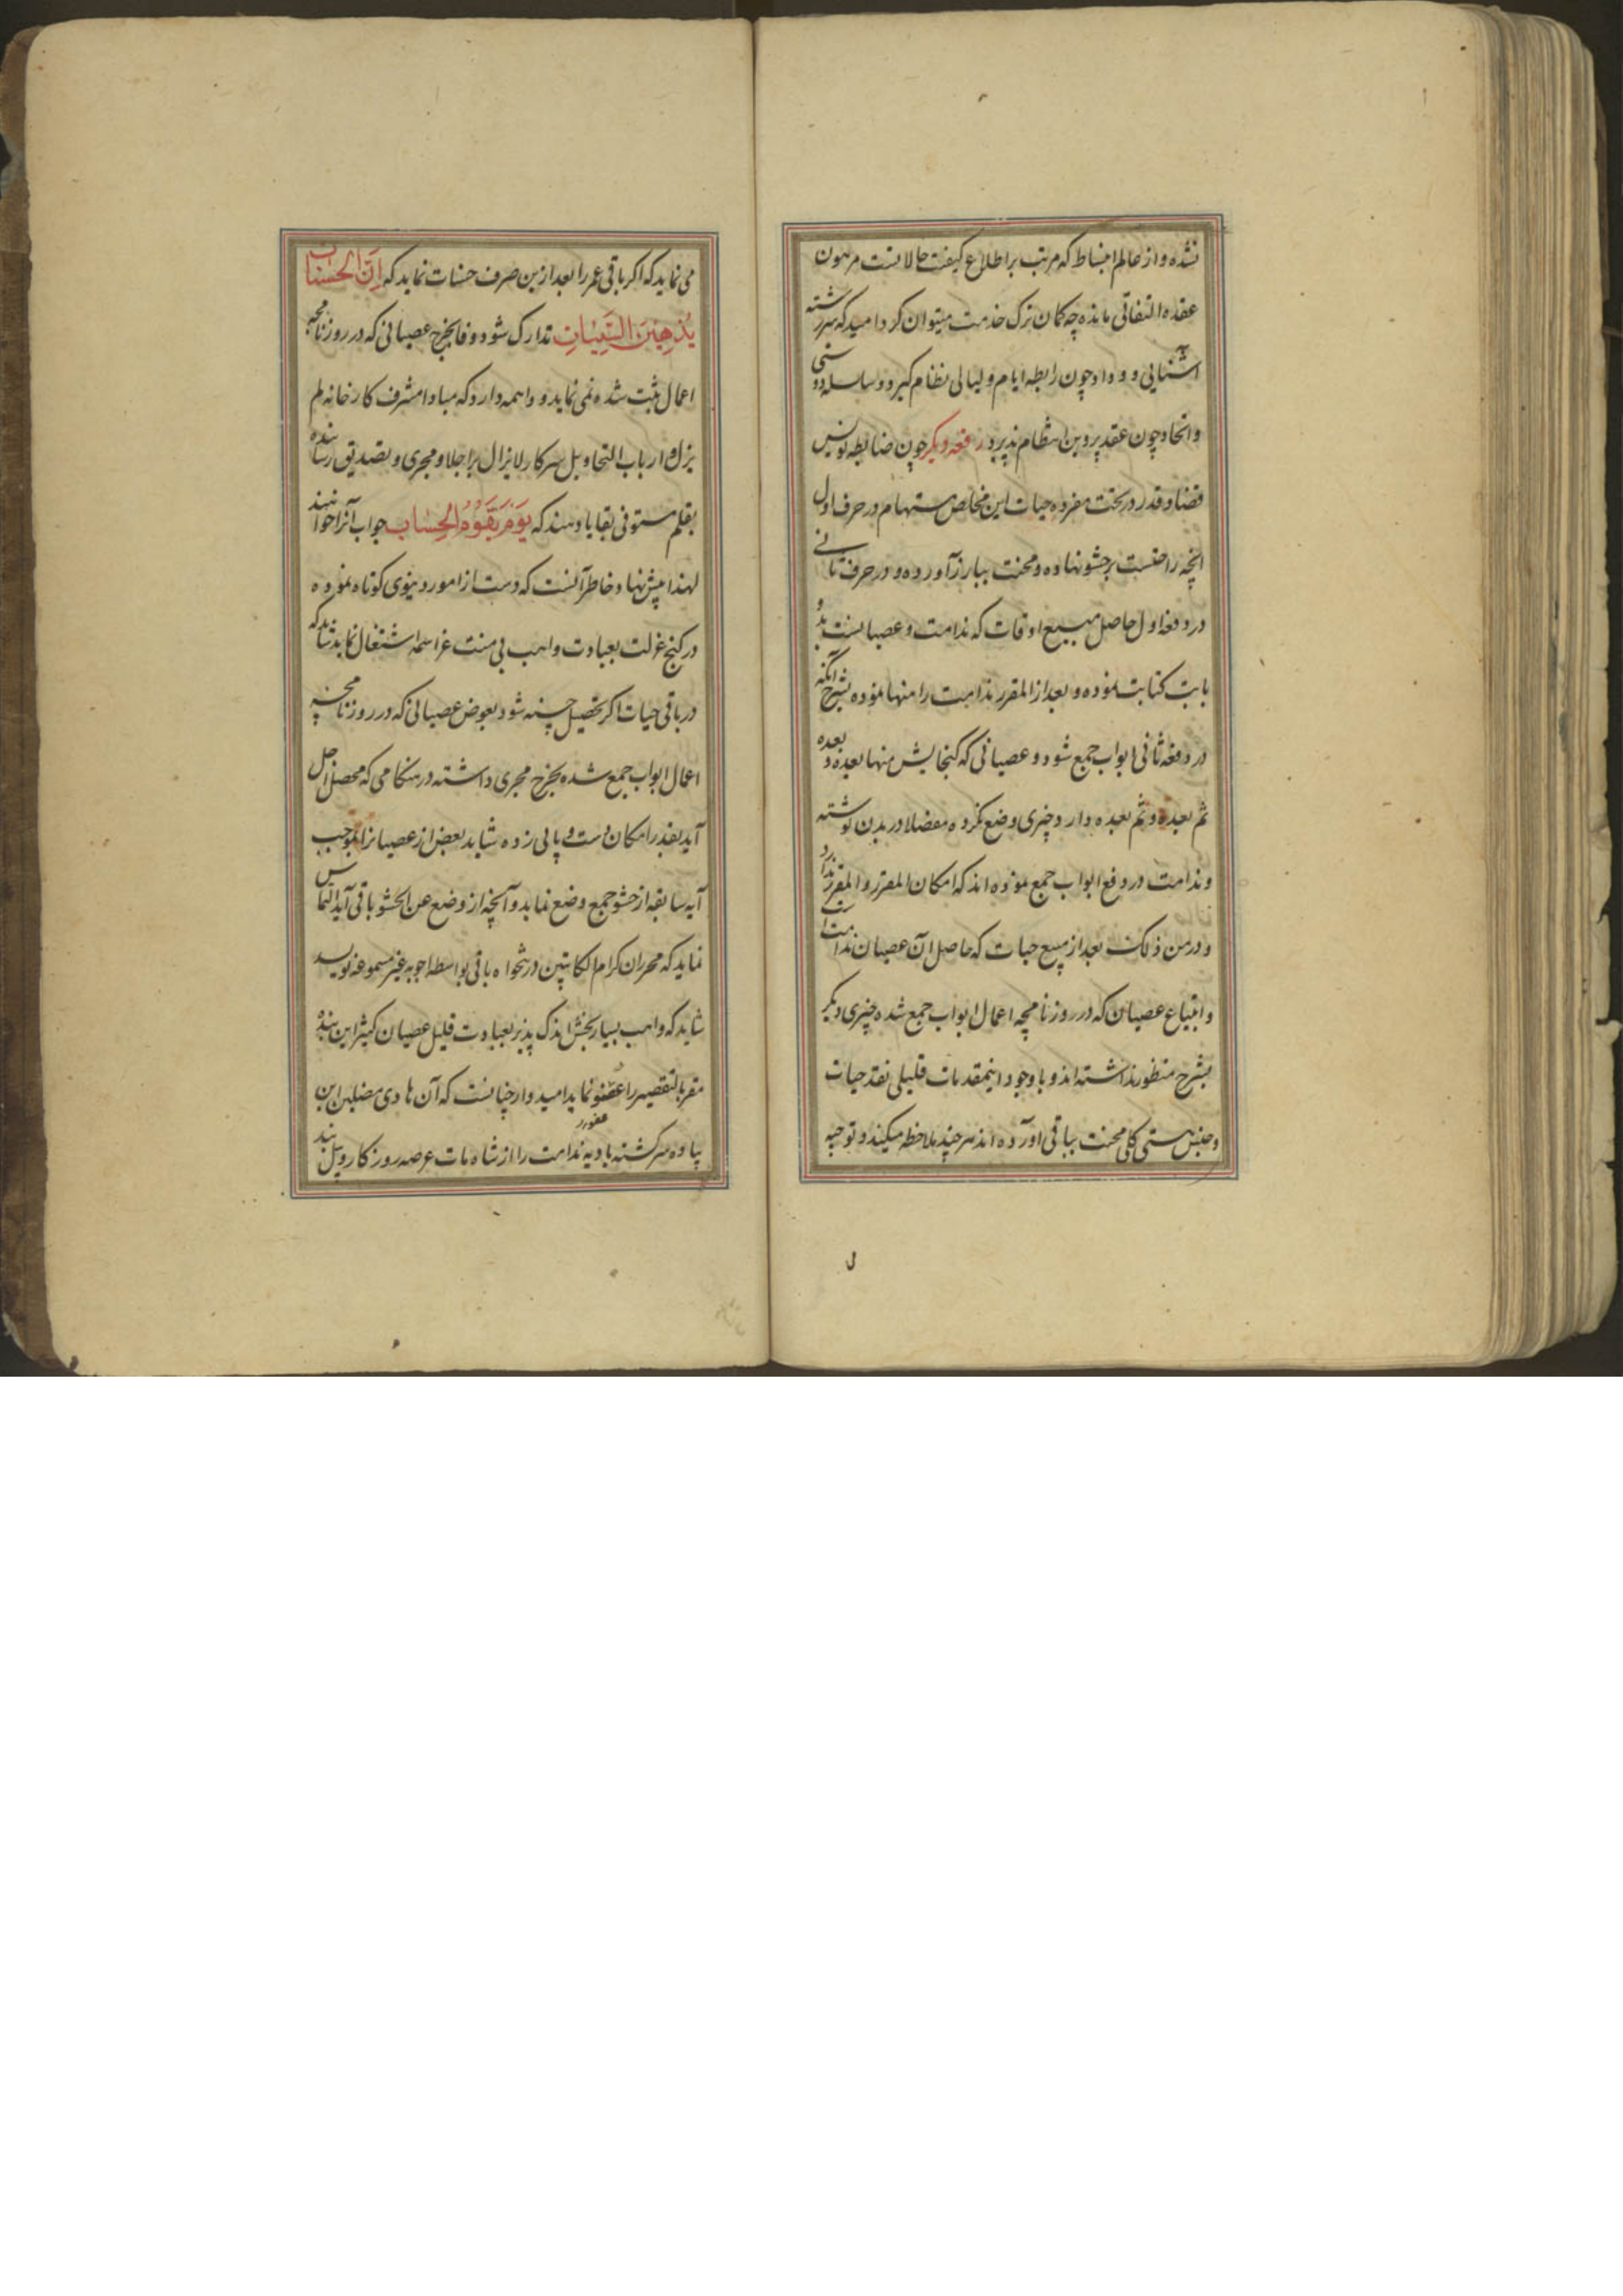 نشده و از عالم انبساط که مرتب بر اطلاع کیفیت حالاتست مرهون
عقده التفاتی مانده چه کمان ترک خدمت میتوان کرد امید که سررشته
آشنایی و وداد چون رابطه ایام و لیالی نظام کیرد و سلسله دوستی
و اتحاد چون عقد پروین انتظام پذیرد رقعه دیکر چون ضابطه نویس
قضا و قدر در تحت مفرده حیات این مخلص مستهام در حرف اول
انچه راحتست بر حشو نهاده و محنت ببارز آورده و در حرف ثانی
در دفعه اول حاصل مبیع اوقات که ندامت و عصیانست
بابت کتابت نموده و بعد از المقرر ندامت را منها نموده بشرح آنکه
در دفعه ثانی ابواب جمع شود و عصیانی که کنجایش منها بعده و بعده
ثم بعده و ثم بعده دارد چیزی وضع نکرده مفصلا در بدن نوشته
و ندامت در دفع ابواب جمع نموده اند که امکان المقرر و المقرر ندارد
و در من ذلک بعد از مبیع حیات که حاصل آن عصیان ندامت است
و ابتیاع عصیان که در روزنامچه اعمال ابواب جمع شده چیزی دیکر
بشرح منظور نداشته اند و با وجود اینمقدمات قلیلی نقد حیات
و جنس هستی کل محنت بباقی آورده اند هر چند ملاحظه میکند و توجیه
می نماید که اکر باقی عمر را بعد ازین صرف حسنات نماید که اِنَّ الحسنات
یُذهِبنَ السَّیِّئاتِ تدارک شود وفا بخرج عصیانی که در روزنامچه
اعمال ثبت شده نمی نماید و واهمه دارد که مبادا مشرف کارخانه لم
یزل و ارباب التحاویل سرکار لایزال براجلا و مجری و تصدیق رسانده
بقلم مستوفی بقایا دهند که یَومَ یَقُومُ الحِساب جواب آنرا خواهند
لهذا پیش نهاد خاطر آنست که دست از امور دنیوی کوتاه نموده
در کنج عزلت بعبادت واهب بی منت عز اسمه اشتغال نماید شاید که
در باقی حیات اکر تحصیل حسنه شود بعوض عصیانی که در روزنامچه
اعمال ابواب جمع شده بخرج مجری داشته در هنکامی که محصل اجل
آید بقدر امکان دست و پایی زده شاید بعض از عصیانرا بموجب
آیه سابقه از حشو جمع وضع نماید و آنچه از وضع عن الحشو باقی آید التماس
نماید که محرران کرام الکاتبین در تنخواه باقی بواسطه اجوبه غیر مسموعه نویسد
شاید که واهب بسیار بخش اندک پذیر بعبادت قلیل عصیان کثیر این بنده
مقر بالتقصیر را عفو نماید امیدوار چنانست که آن هادی مضلین این
پیاده سرکشته بادیه ندامت را از شاه مات عرصه روزکار